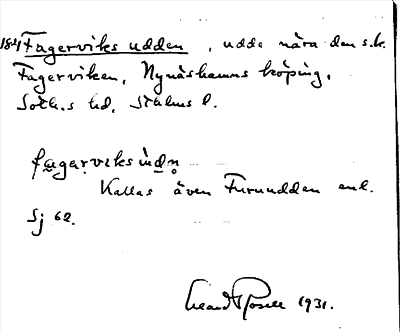 184 Fagerviks udden, udde nära den s.k.
Fagerviken, Nynäshamns köping,
Soth.s hd, Sthlms l.
fagarviksùdn
Kallas även Furuudden enl.
Sj 62.
1931.